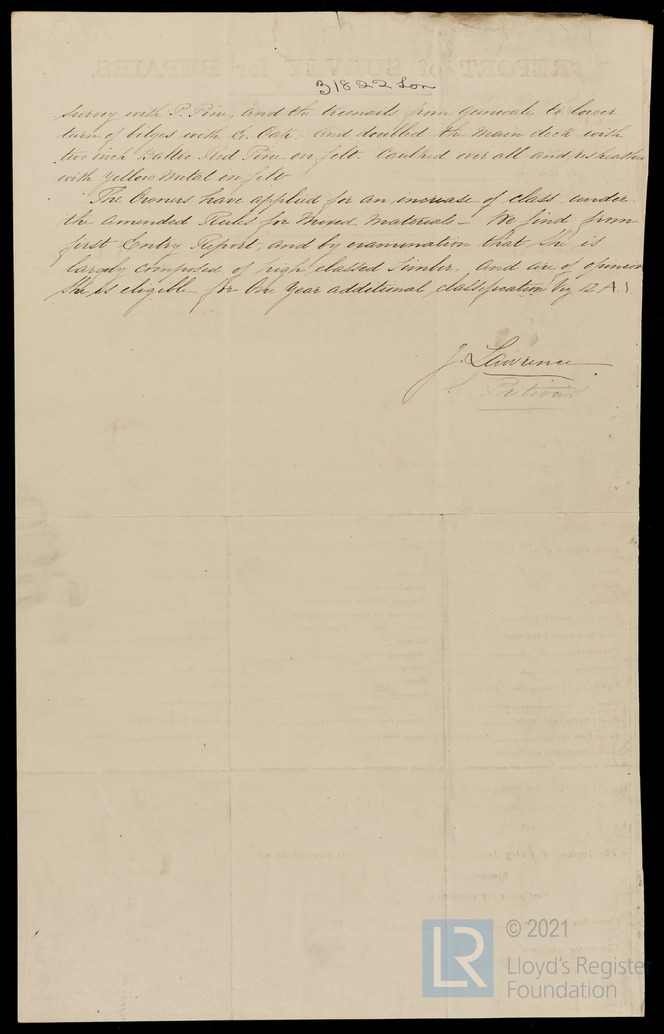 31822 Lon
survey with P. Pine, and the treenails from gunwale to lower
turn of bilges with E. Oak. and doubled the main deck with
two inch Baltic Red Pine on felt. Caulked over all and resheathed
with Yellow Metal on felt
The Owners have applied for an increase of class under
the amended Rules for Mixed Materials - We find from
first Entry Report, and by examination that She is
largely composed of high classed Timber. And are of opinion
She is eligible for One Year additional classification Viz 12 A.1.
J. Lawrence
LR
© 2021
Lloyd's Register
Foundation